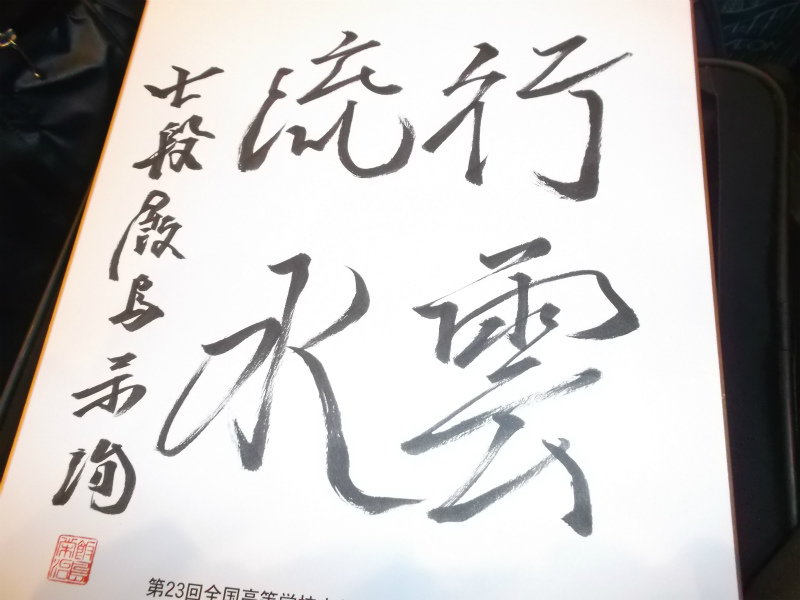 行雲
流水
七段 飯島栄治
飯島
栄治
第23回全国高等学校